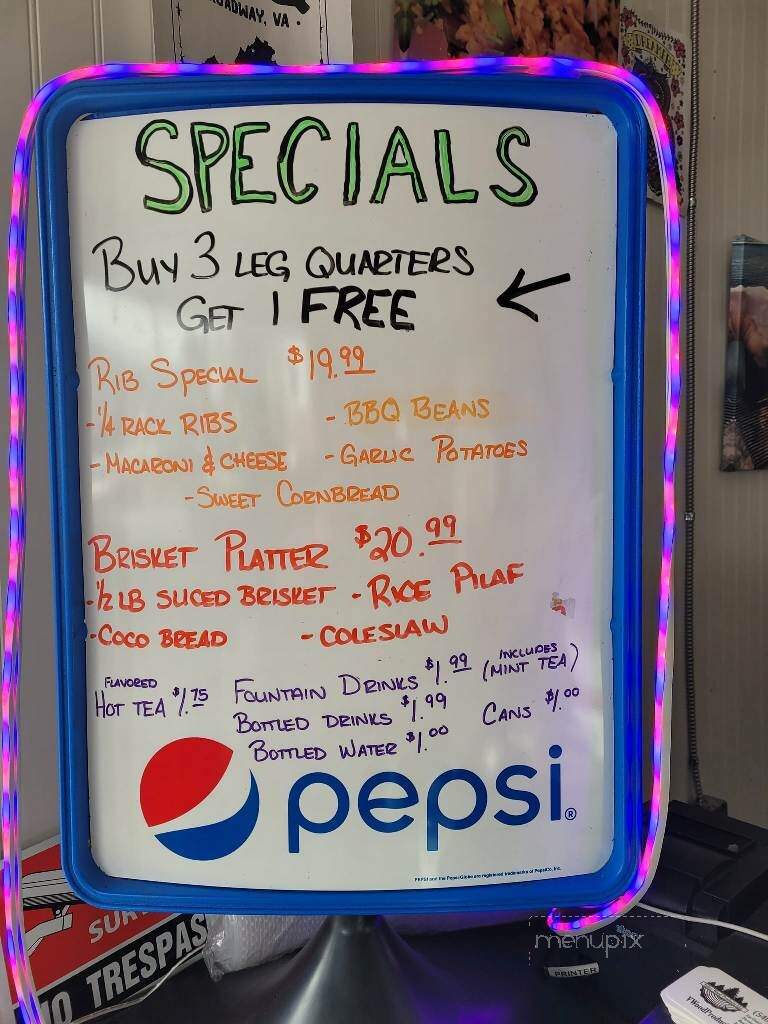 OADWAY, VA.
SPECIALS
BUY 3 LEG QUARTERS
GET 1 FREE
RIB SPECIAL $19.99
-1/4 RACK RIBS - BBQ BEANS
- MACARONI & CHEESE - GARLIC POTATOES
-SWEET CORNBREAD
BRISKET PLATTER $20.99
-1/2 LB SLICED BRISKET - RICE PILAF
-COCO BREAD - COLESLAW
FLAVORED HOT TEA $1.75
FOUNTAIN DRINKS $1.99 (INCLUDES MINT TEA)
BOTTLED DRINKS $1.99 CANS $1.00
BOTTLED WATER $1.00
pepsi®
PEPSI and the Pepsi Globe are registered trademarks of PepsiCo, Inc.
SUR
O TRESPAS
menupix
PRINTER